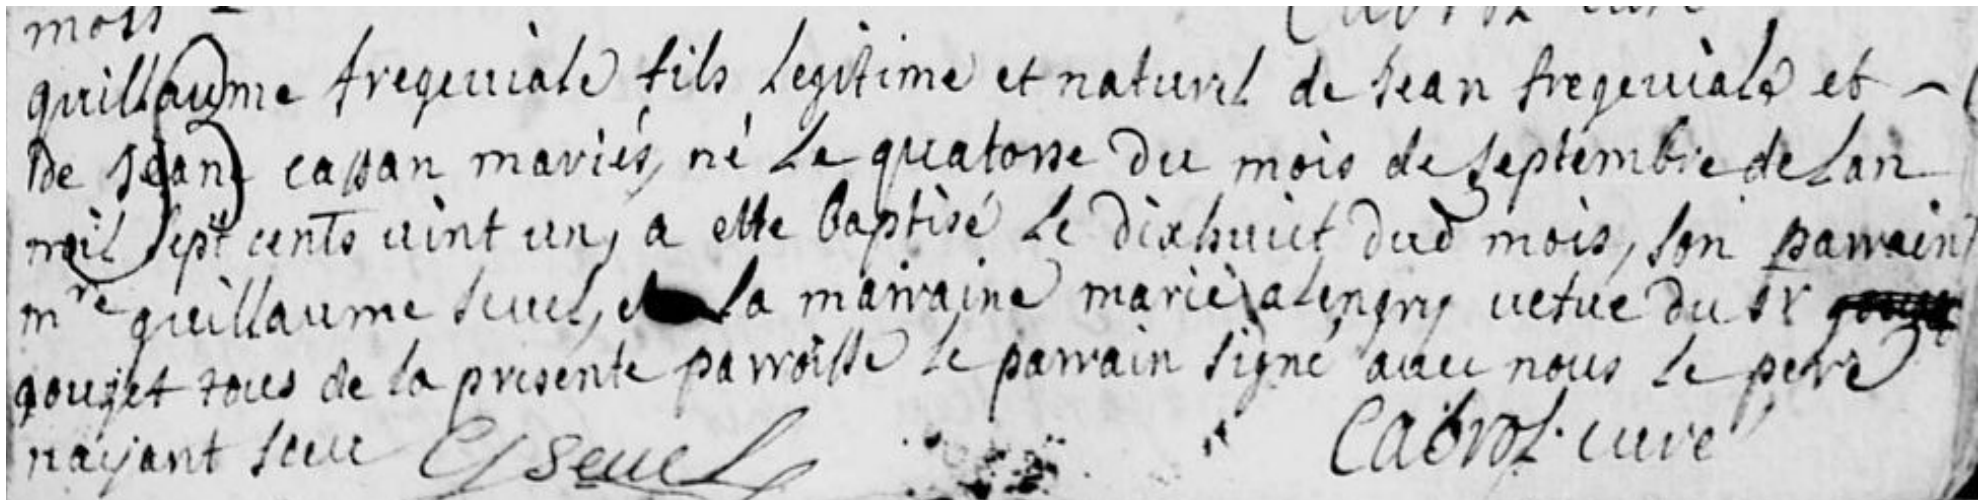 mois
guillaume fregeuiale fils legitime et naturel de Jean fregeuiale et
de Jeane cassan mariés, né le quatorse du mois de septembre de lan
mil sept cents uint un, a ette baptisé le dixhuict dud mois, son parrain
mre guillaume seuel, et la marraine marie alengry uefue du sr
goujet tous de la presente parroisse le parrain signé auec nous le pere
nayant sceu GSeuel Cabrol curé